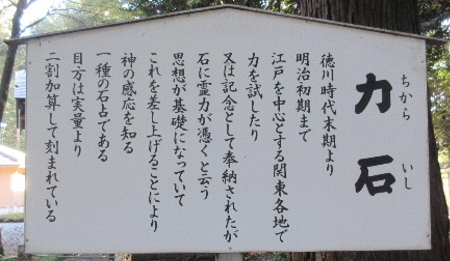 力石
ちから いし
徳川時代末期より
明治初期まで
江戸を中心とする関東各地で
力を試したり
又は記念として奉納されたが
石に霊力が憑くと云う
思想が基礎になっていて
これを差し上げることにより
神の感応を知る
一種の石占である
目方は実量より
二割加算して刻まれている